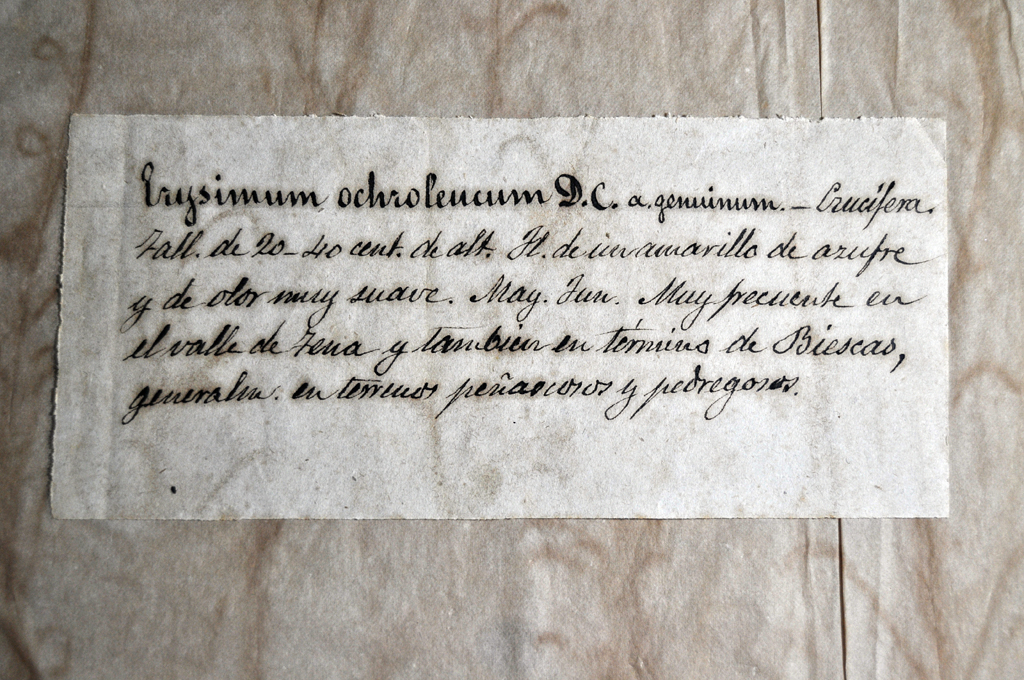 Erysimum ochroleucum D.C. a. genuinum. – Crucífera.
Tall. de 20–40 cent. de alt. Fl. de un amarillo de azufre
y de olor muy suave. May. Jun. Muy frecuente en
el valle de Tena y tambien en término de Biescas,
generalm. en terrenos peñascosos y pedregosos.